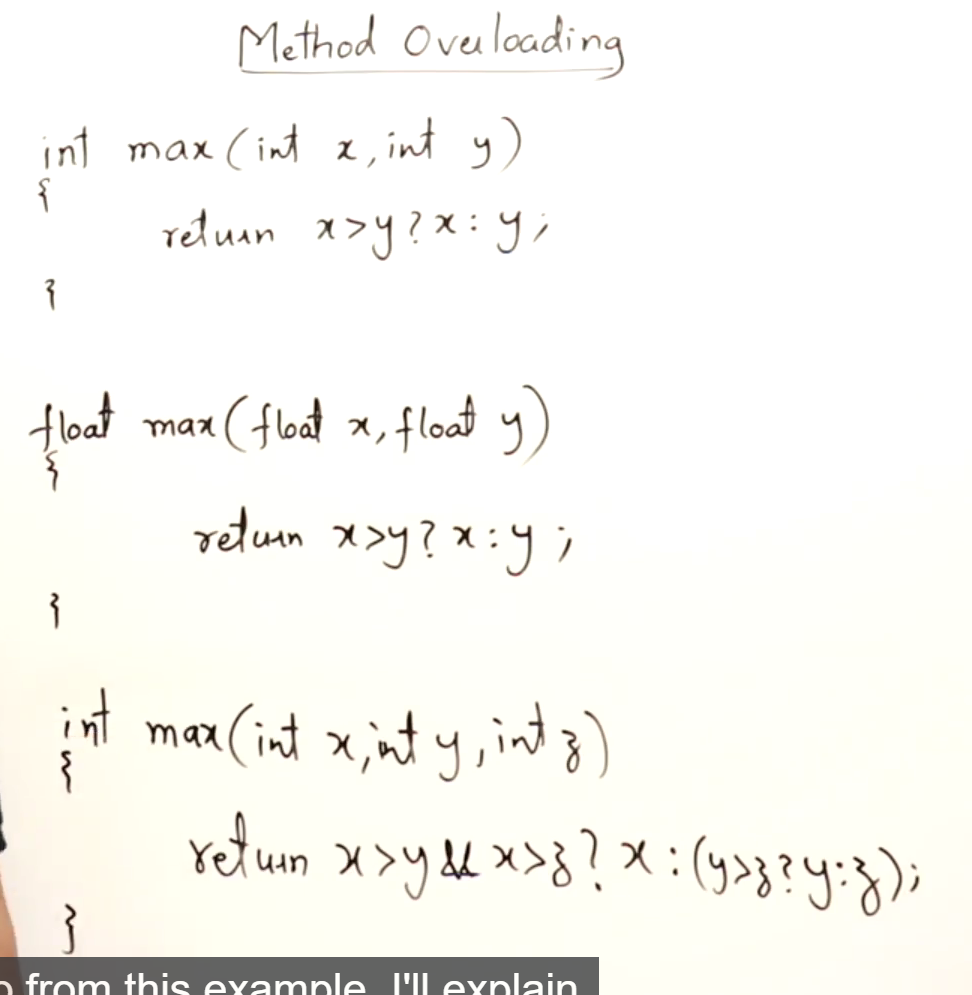 Method Overloading
int max(int x, int y)
{
return x>y?x:y;
}
float max(float x, float y)
{
return x>y?x:y;
}
int max(int x, int y, int z)
{
return x>y && x>z? x:(y>z?y:z);
}
from this example, I'll explain